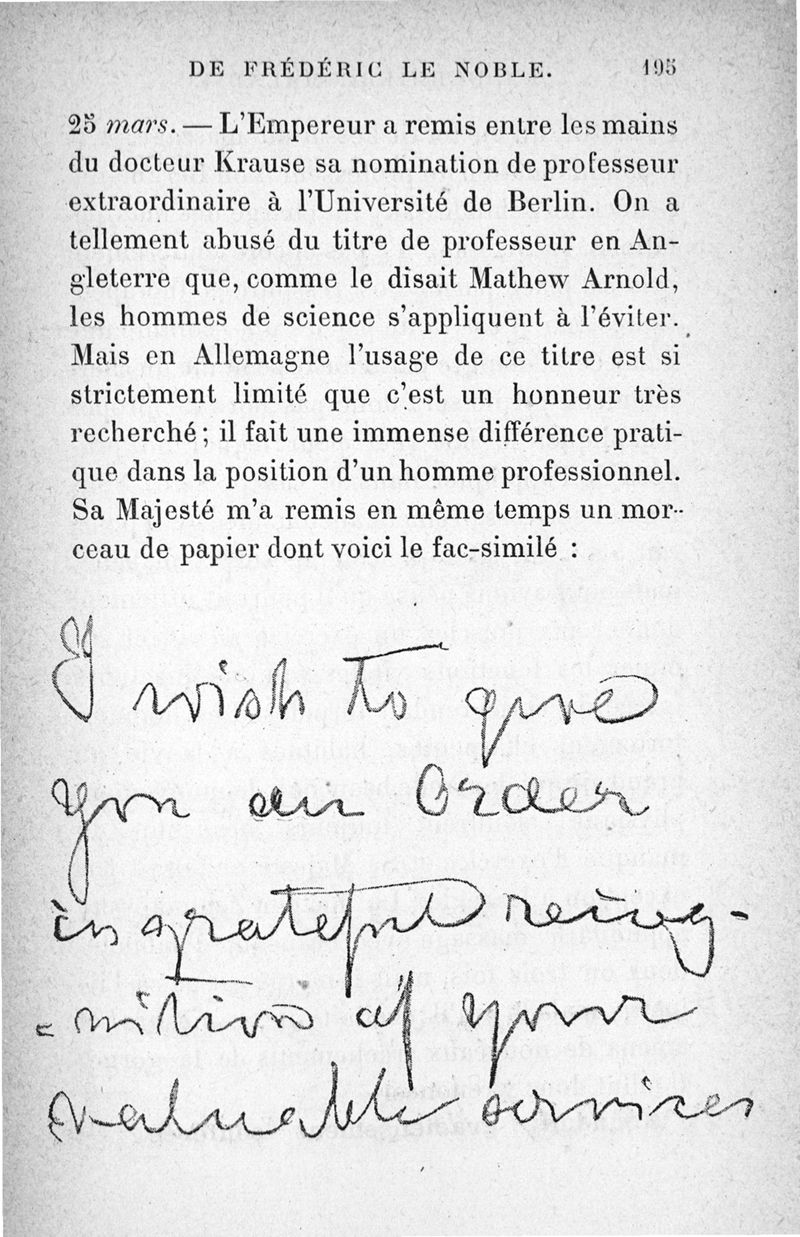 DE FRÉDÉRIC LE NOBLE. 195
25 mars. — L'Empereur a remis entre les mains
du docteur Krause sa nomination de professeur
extraordinaire à l'Université de Berlin. On a
tellement abusé du titre de professeur en An-
gleterre que, comme le disait Mathew Arnold,
les hommes de science s'appliquent à l'éviter.
Mais en Allemagne l'usage de ce titre est si
strictement limité que c'est un honneur très
recherché ; il fait une immense différence prati-
que dans la position d'un homme professionnel.
Sa Majesté m'a remis en même temps un mor-
ceau de papier dont voici le fac-similé :
I wish to give
you an Order
in grateful recog-
-nition of your
valuable services